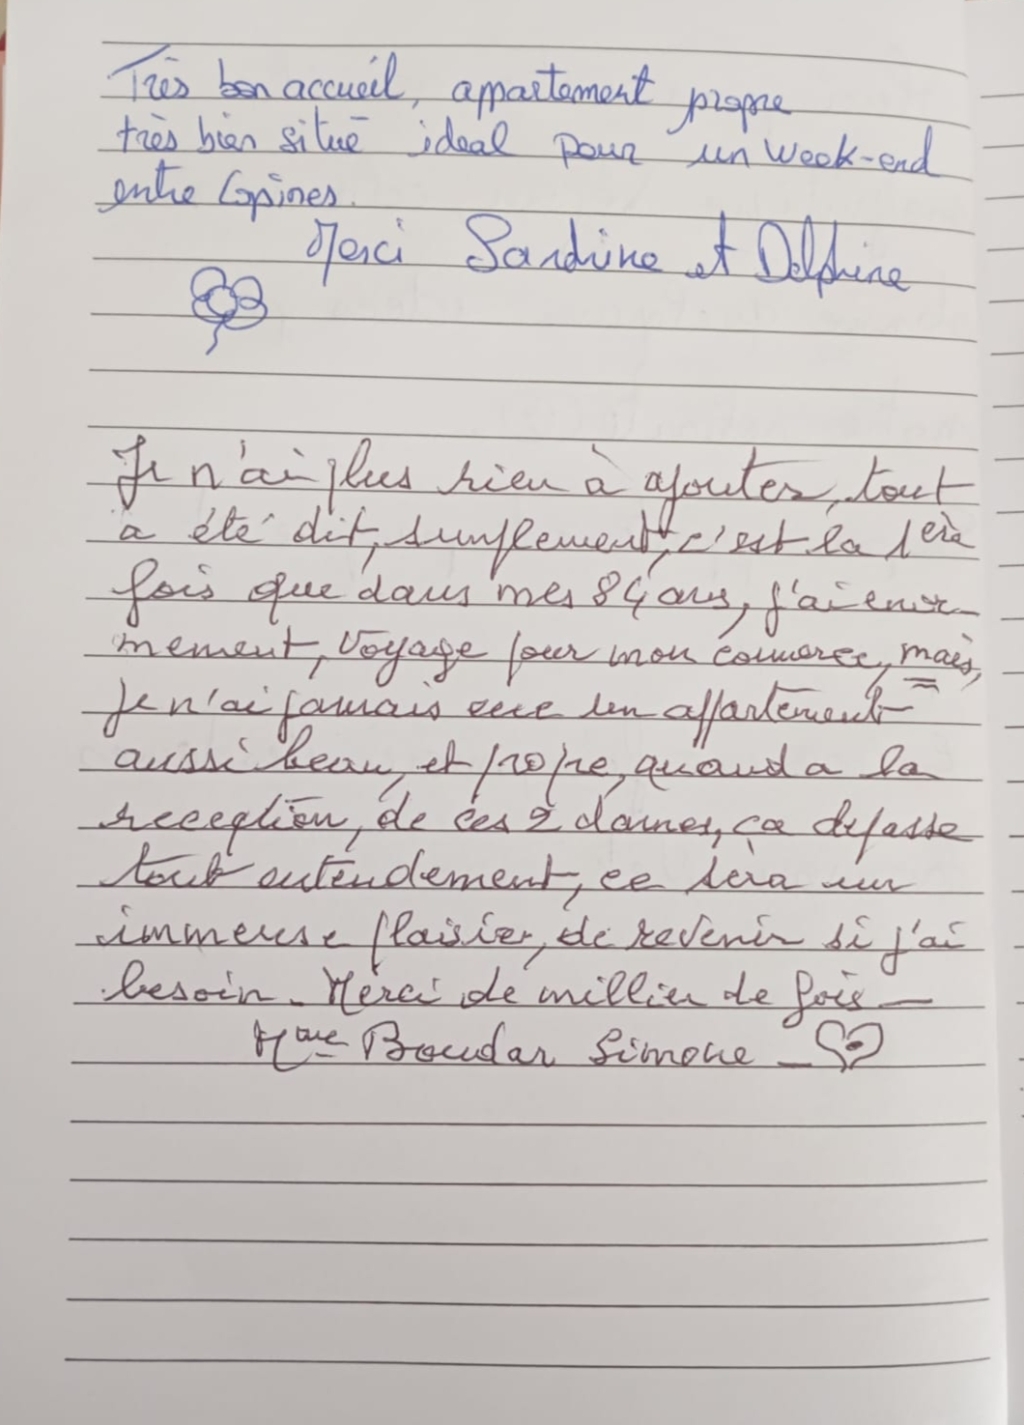 Très bon accueil, appartement propre
très bien situé ideal pour un week-end
entre Copines.
Merci Sandrine et Delphine
Je n'ai plus rien à ajouter, tout
a été dit, simplement, c'est la 1erè
fois que dans mes 84 ans, j'ai enor-
mement, voyage pour mon commerce, mais,
Je n'ai jamais vue un appartement
aussi beau, et propre, quand a la
reception, de ces 2 dames, ça depasse
tout entendement, ce sera un
immense plaisir, de revenir si j'ai
besoin. Merci de millier de fois —
Mme Boudar Simone —